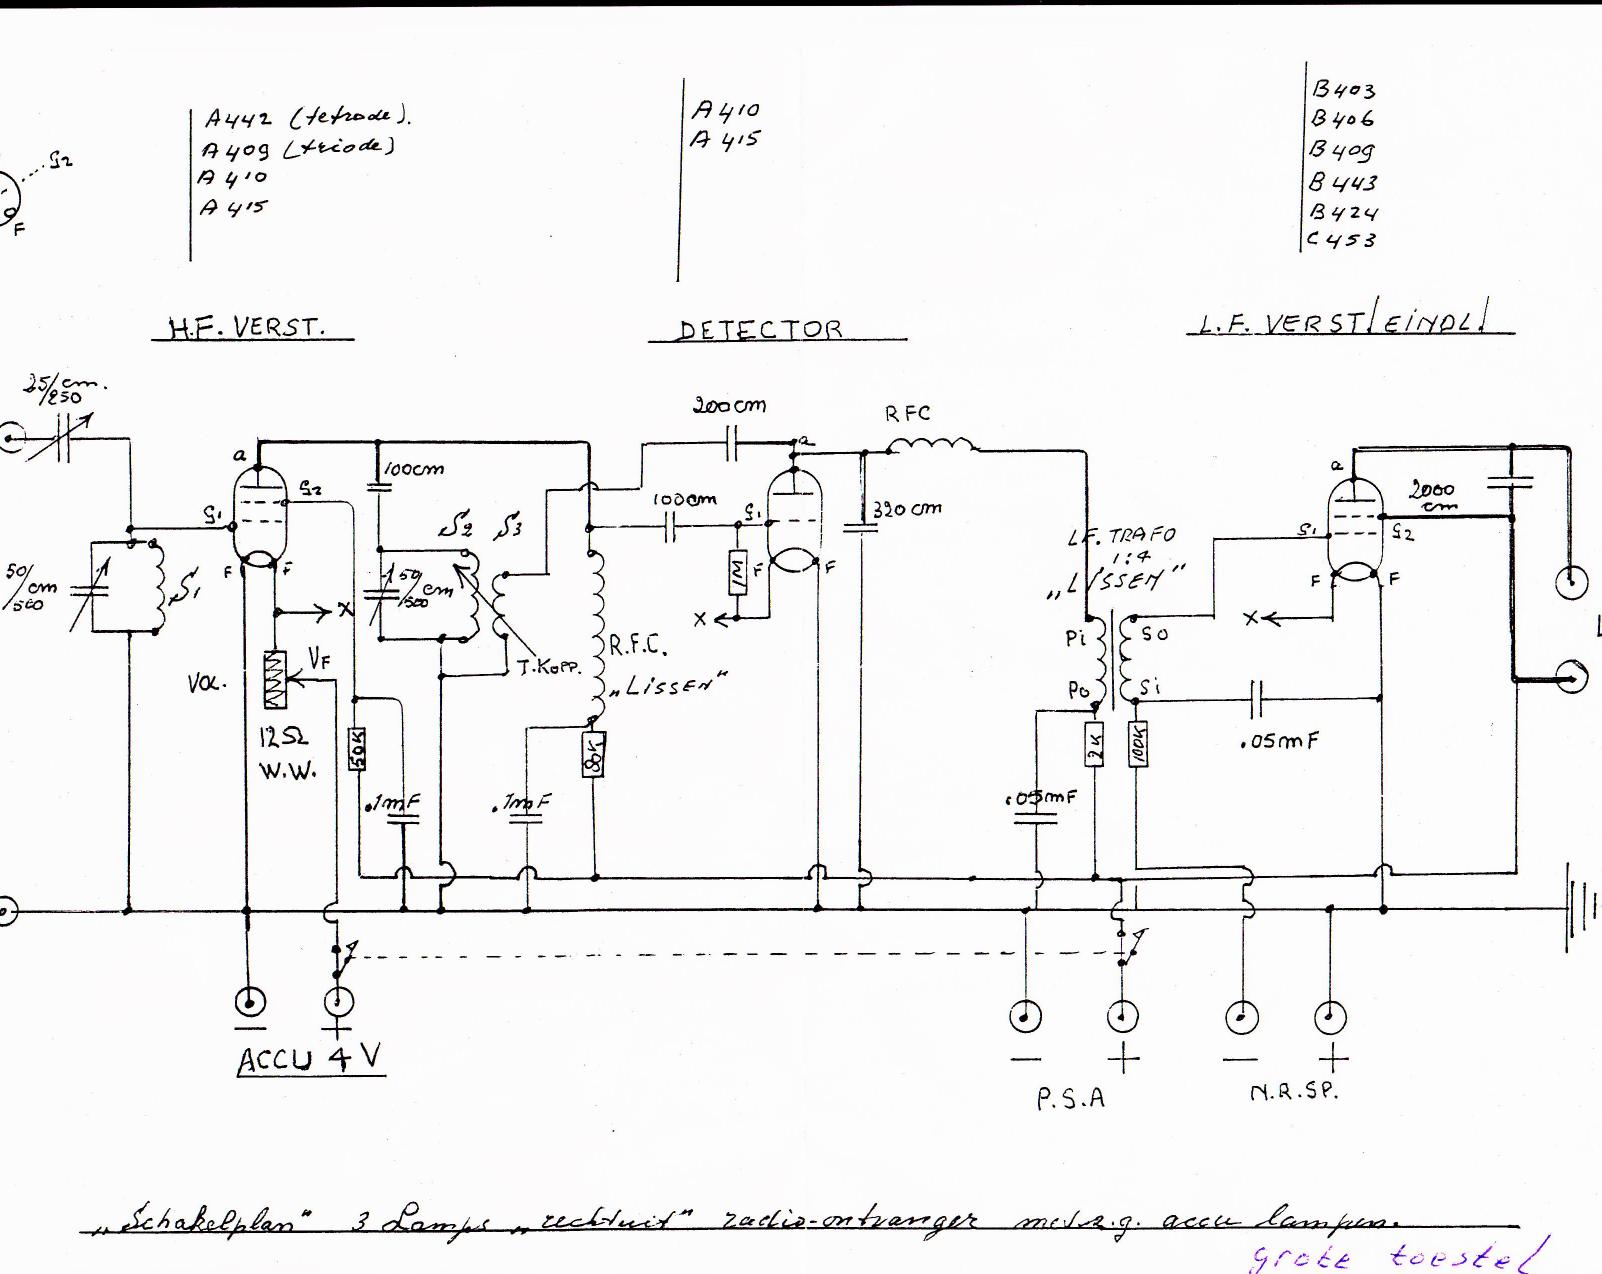 G2
F
A442 (tetrode).
A409 (triode)
A410
A415
A410
A415
B403
B406
B409
B443
B424
C453
H.F. VERST.
DETECTOR
L.F. VERST/EINDL/
25/250 cm.
a
100cm
G2
G1
F
F
50/500 cm
S1
X
VOL.
VF
12Ω
W.W.
50K
.1mF
S2
S3
50/500 cm
T.KOPP.
200cm
100cm
G1
a
1M
F
F
X
R.F.C.
„LISSEN"
80K
.1mF
RFC
320 cm
L.F. TRAFO
1:4
„LISSEN"
Pi
SO
PO
Si
2K
100K
.05mF
.05mF
a
2000 cm
G1
G2
F
F
X
L
ACCU 4 V
− +
− +
− +
P.S.A
N.R.SP.
„Schakelplan" 3 Lamps „rechtuit" radio-ontvanger met z.g. accu lampen.
grote toestel